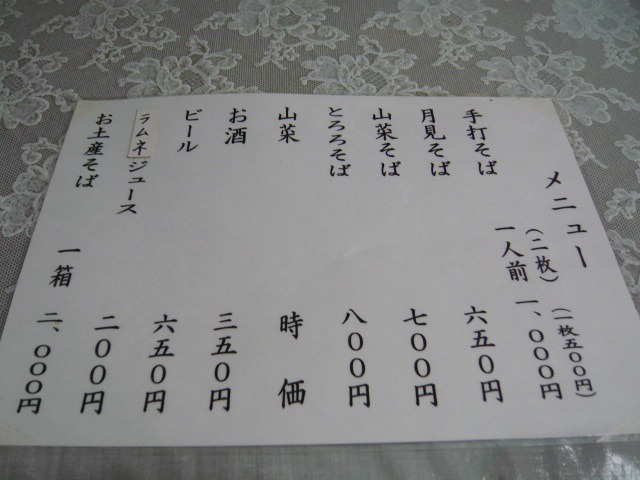 メニュー
手打そば 一人前(二枚) 一、〇〇〇円(一枚五〇〇円)
月見そば 六五〇円
山菜そば 七〇〇円
とろろそば 八〇〇円
山菜 時価
お酒 三五〇円
ビール 六五〇円
ラムネジュース 二〇〇円
お土産そば 一箱 二、〇〇〇円